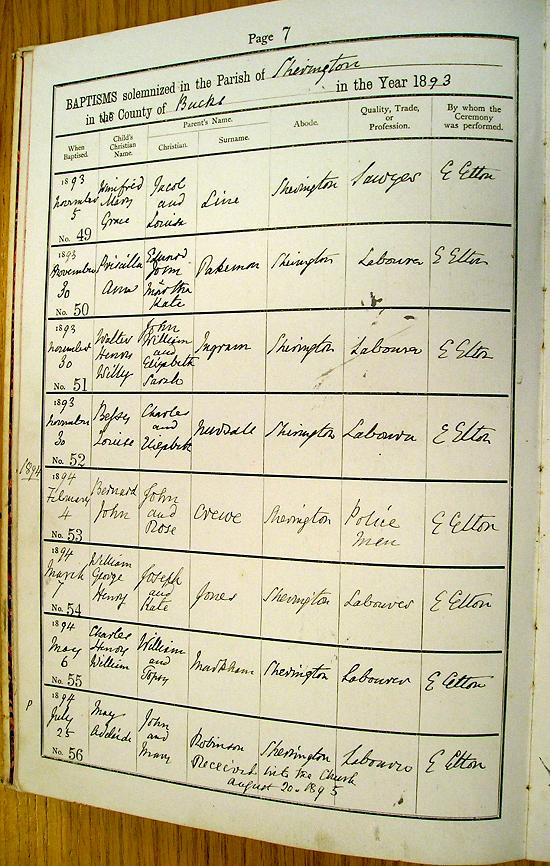 Page 7
BAPTISMS solemnized in the Parish of Sherington
in the County of Bucks in the Year 1893
When Baptised. Child's Christian Name. Parent's Name. Christian. Surname. Abode. Quality, Trade, or Profession. By whom the Ceremony was performed.
1893 November 5 No. 49 Winifred Mary Grace Jacob and Louisa Line Sherington Sawyer E Elton
1893 November 30 No. 50 Priscilla Ann John Martha Kate Pakeman Sherington Labourer E Elton
1893 November 30 No. 51 Walter Henry Willy John William and Elizabeth Sarah Ingram Sherington Labourer E Elton
1893 November 30 No. 52 Bessy Louise Charles and Elizabeth Sherington Labourer E Elton
1894
1894 February 4 No. 53 Bernard John John and Rose Crewe Sherington Police Man E Elton
1894 March 7 No. 54 William George Henry Joseph and Kate Jones Sherington Labourer E Elton
1894 May 6 No. 55 Charles Henry William William and Topsy Markham Sherington Labourer E Elton
P
1894 July 25 No. 56 May Adelaide John and Mary Robinson Sherington Labourer E Elton
Received into the Church
August 20. 1895